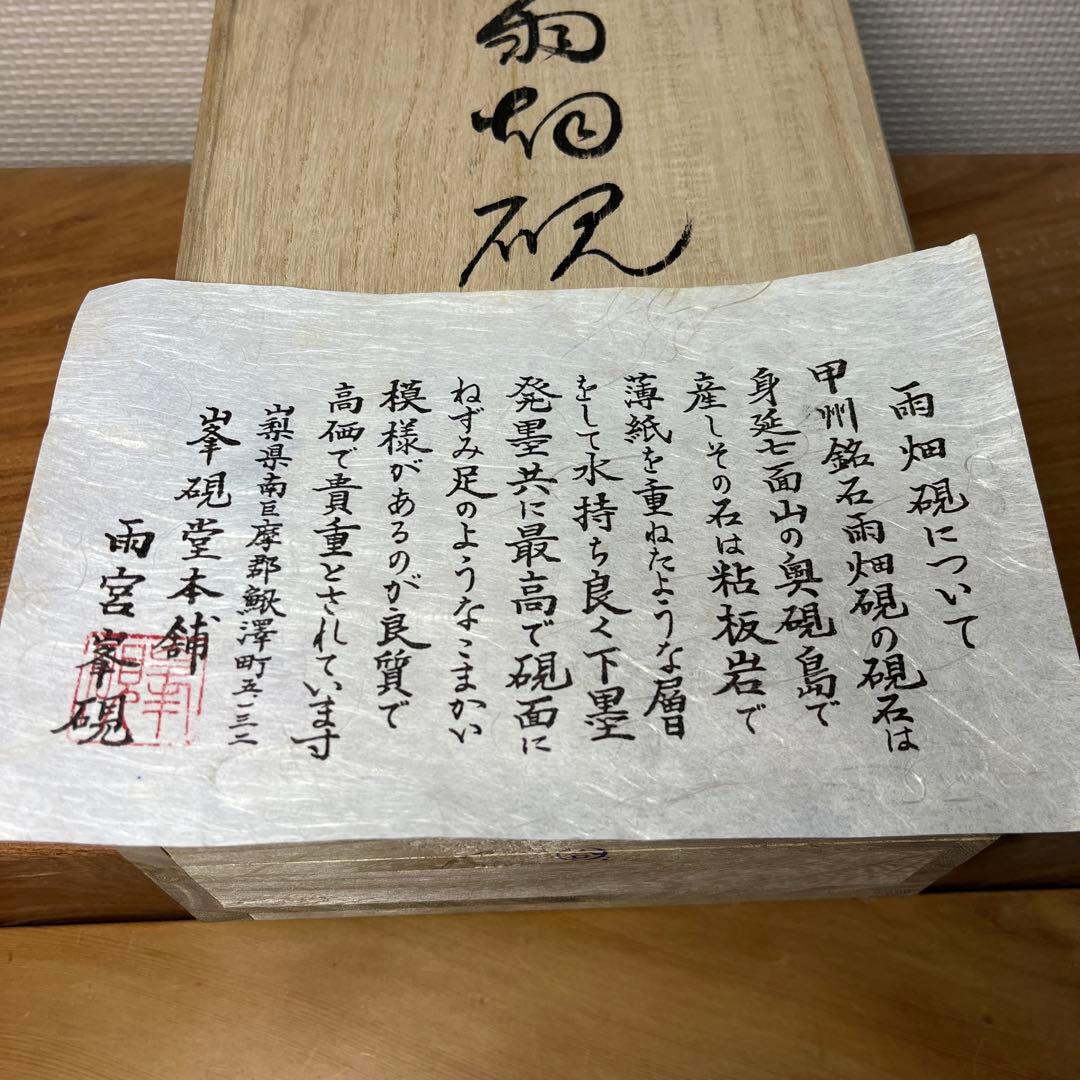 雨畑硯
雨畑硯について
甲州銘石雨畑硯の硯石は
身延七面山の奥硯島で
産しその石は粘板岩で
薄紙を重ねたような層
をして水持ち良く下墨
発墨共に最高で硯面に
ねずみ足のようなこまかい
模様があるのが良質で
高価で貴重とされています
山梨県南巨摩郡鰍澤町五一三二
峯硯堂本舗
雨宮峯硯